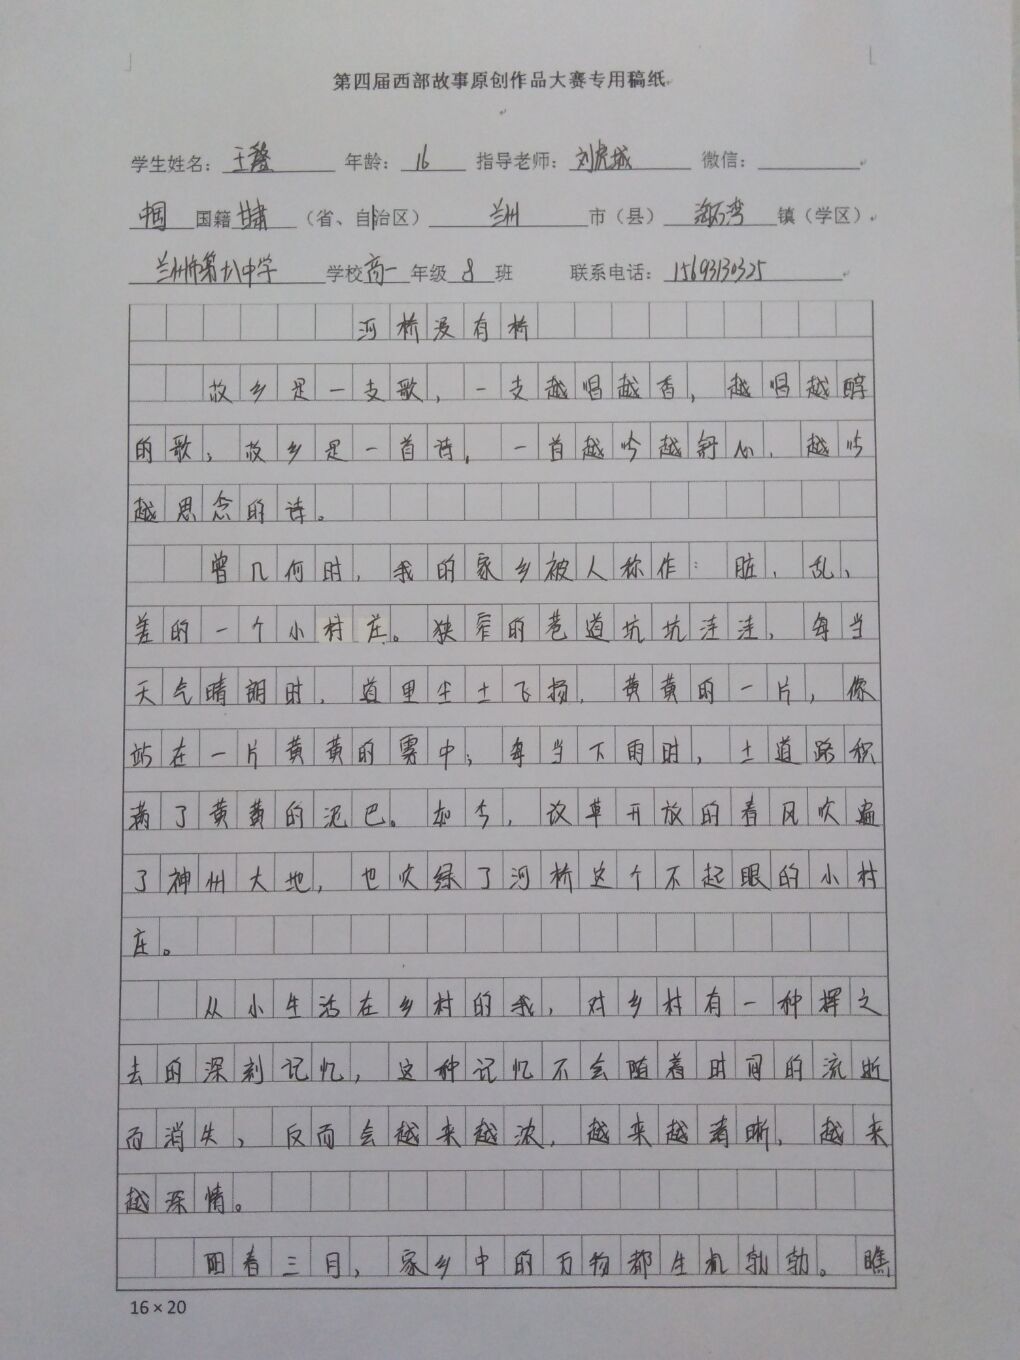 第四届西部故事原创作品大赛专用稿纸
学生姓名：王 年龄：16 指导老师：刘虎城 微信：
中国国籍甘肃（省、自治区）兰州市（县）海石湾镇（学区）
兰州市第十八中学学校高一年级8班 联系电话：15693130325
河桥没有桥
故乡是一支歌，一支越唱越香，越唱越醇
的歌，故乡是一首诗，一首越吟越舒心，越吟
越思念的诗。
曾几何时，我的家乡被人称作：脏、乱、
差的一个小村庄。狭窄的巷道坑坑洼洼，每当
天气晴朗时，道里尘土飞扬，黄黄的一片，像
站在一片黄黄的雾中，每当下雨时，土道路积
满了黄黄的泥巴。如今，改革开放的春风吹遍
了神州大地，也吹绿了河桥这个不起眼的小村
庄。
从小生活在乡村的我，对乡村有一种挥之
去的深刻记忆，这种记忆不会随着时间的流逝
而消失，反而会越来越浓，越来越清晰，越来
越深情。
阳春三月，家乡中的万物都生机勃勃。瞧
16×20